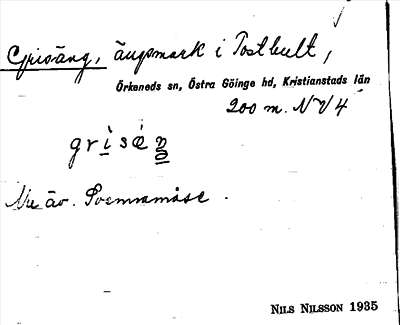 Grisäng, ängsmark i Tostbult,
Örkeneds sn, Östra Göinge hd, Kristianstads län
200 m. NV 4
Nu äv. Svenramåse.
NILS NILSSON 1935